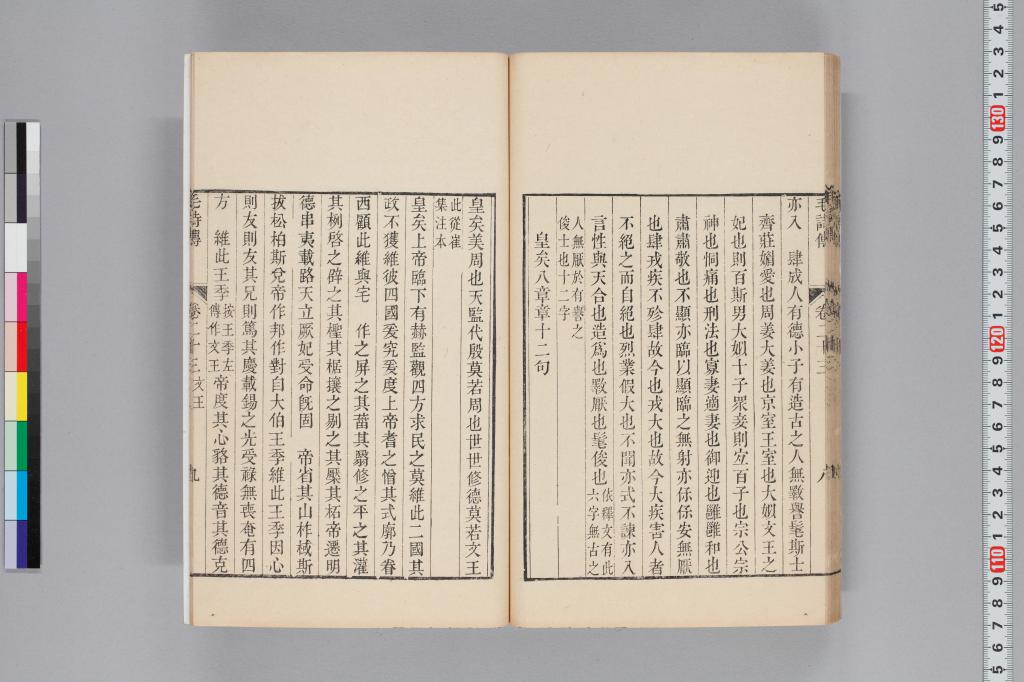 亦入　肆成人有德小子有造古之人無斁譽髦斯士
齊莊媚愛也周姜大姜也京室王室也大姒文王之
妃也則百斯男大姒十子眾妾則宐百子也宗公宗
神也恫痛也刑法也寡妻適妻也御迎也雝雝和也
肅肅敬也不顯亦臨以顯臨之無射亦保保安無厭
也肆戎疾不殄肆故今也戎大也故今大疾害人者
不絕之而自絕也烈業假大也不聞亦式不諫亦入
言性與天合也造爲也斁厭也髦俊也依釋文有此
六字無古之
人無厭於有譽之
俊士也十二字
皇矣八章章十二句
皇矣美周也天監代殷莫若周也世世修德莫若文王
此從崔
集注本
皇矣上帝臨下有赫監觀四方求民之莫維此二國其
政不獲維彼四國爰究爰度上帝耆之憎其式廓乃眷
西顧此維與宅　作之屏之其菑其翳修之平之其灌
其栵啓之辟之其檉其椐攘之剔之其檿其柘帝遷明
德串夷載路天立厥妃受命旣固　帝省其山柞棫斯
拔松柏斯兌帝作邦作對自大伯王季維此王季因心
則友則友其兄則篤其慶載錫之光受祿無喪奄有四
方　維此王季按王季左
傳作文王帝度其心貉其德音其德克
毛詩傳
卷二十三
文王
九
毛詩傳
八